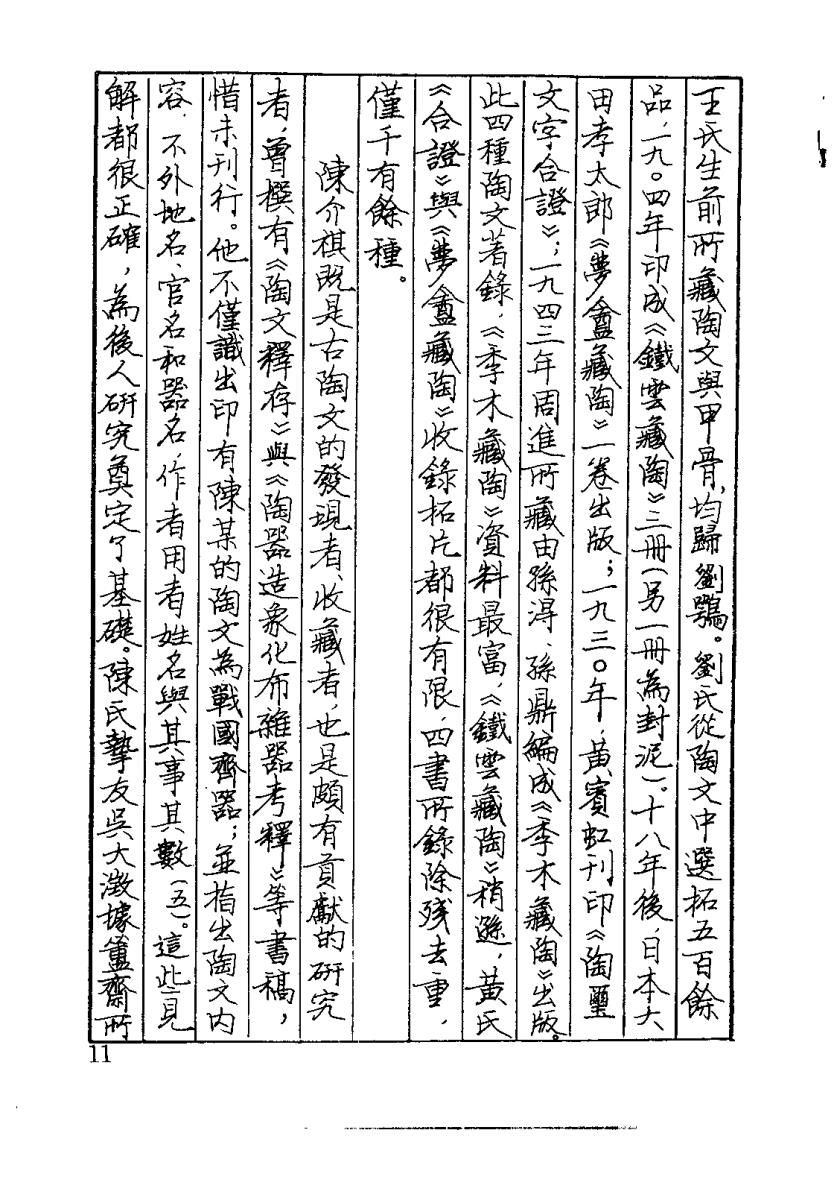 王氏生前所藏陶文與甲骨，均歸劉鶚。劉氏從陶文中選拓五百餘
品，一九〇四年印成《鐵雲藏陶》三冊（另一冊為封泥）。十八年後，日本大
田孝太郎《夢盦藏陶》一卷出版；一九三〇年，黃賓虹刊印《陶璽
文字合證》；一九四三年周進所藏由孫潯、孫鼎編成《季木藏陶》出版。
此四種陶文著錄，《季木藏陶》資料最富，《鐵雲藏陶》稍遜，黃氏
《合證》與《夢盦藏陶》收錄拓片都很有限，四書所錄除殘去重，
僅千有餘種。
陳介祺既是古陶文的發現者、收藏者，也是頗有貢獻的研究
者，曾撰有《陶文釋存》與《陶器造象化布雜器考釋》等書稿，
惜未刊行。他不僅識出印有陳某的陶文為戰國齊器；並指出陶文內
容，不外地名、官名和器名，作者用者姓名與其事其數（五）。這些見
解都很正確，為後人研究奠定了基礎。陳氏摯友吳大澂據簠齋所
11